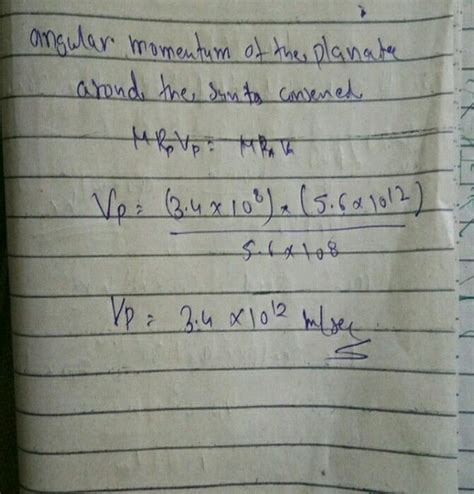 angular momentum of the planate
around the sun is conserved
M Rp Vp = M RA VA
Vp = (3.4 x 10^8) x (5.6 x 10^12)
5.6 x 10^8
Vp = 3.4 x 10^12 m/sec